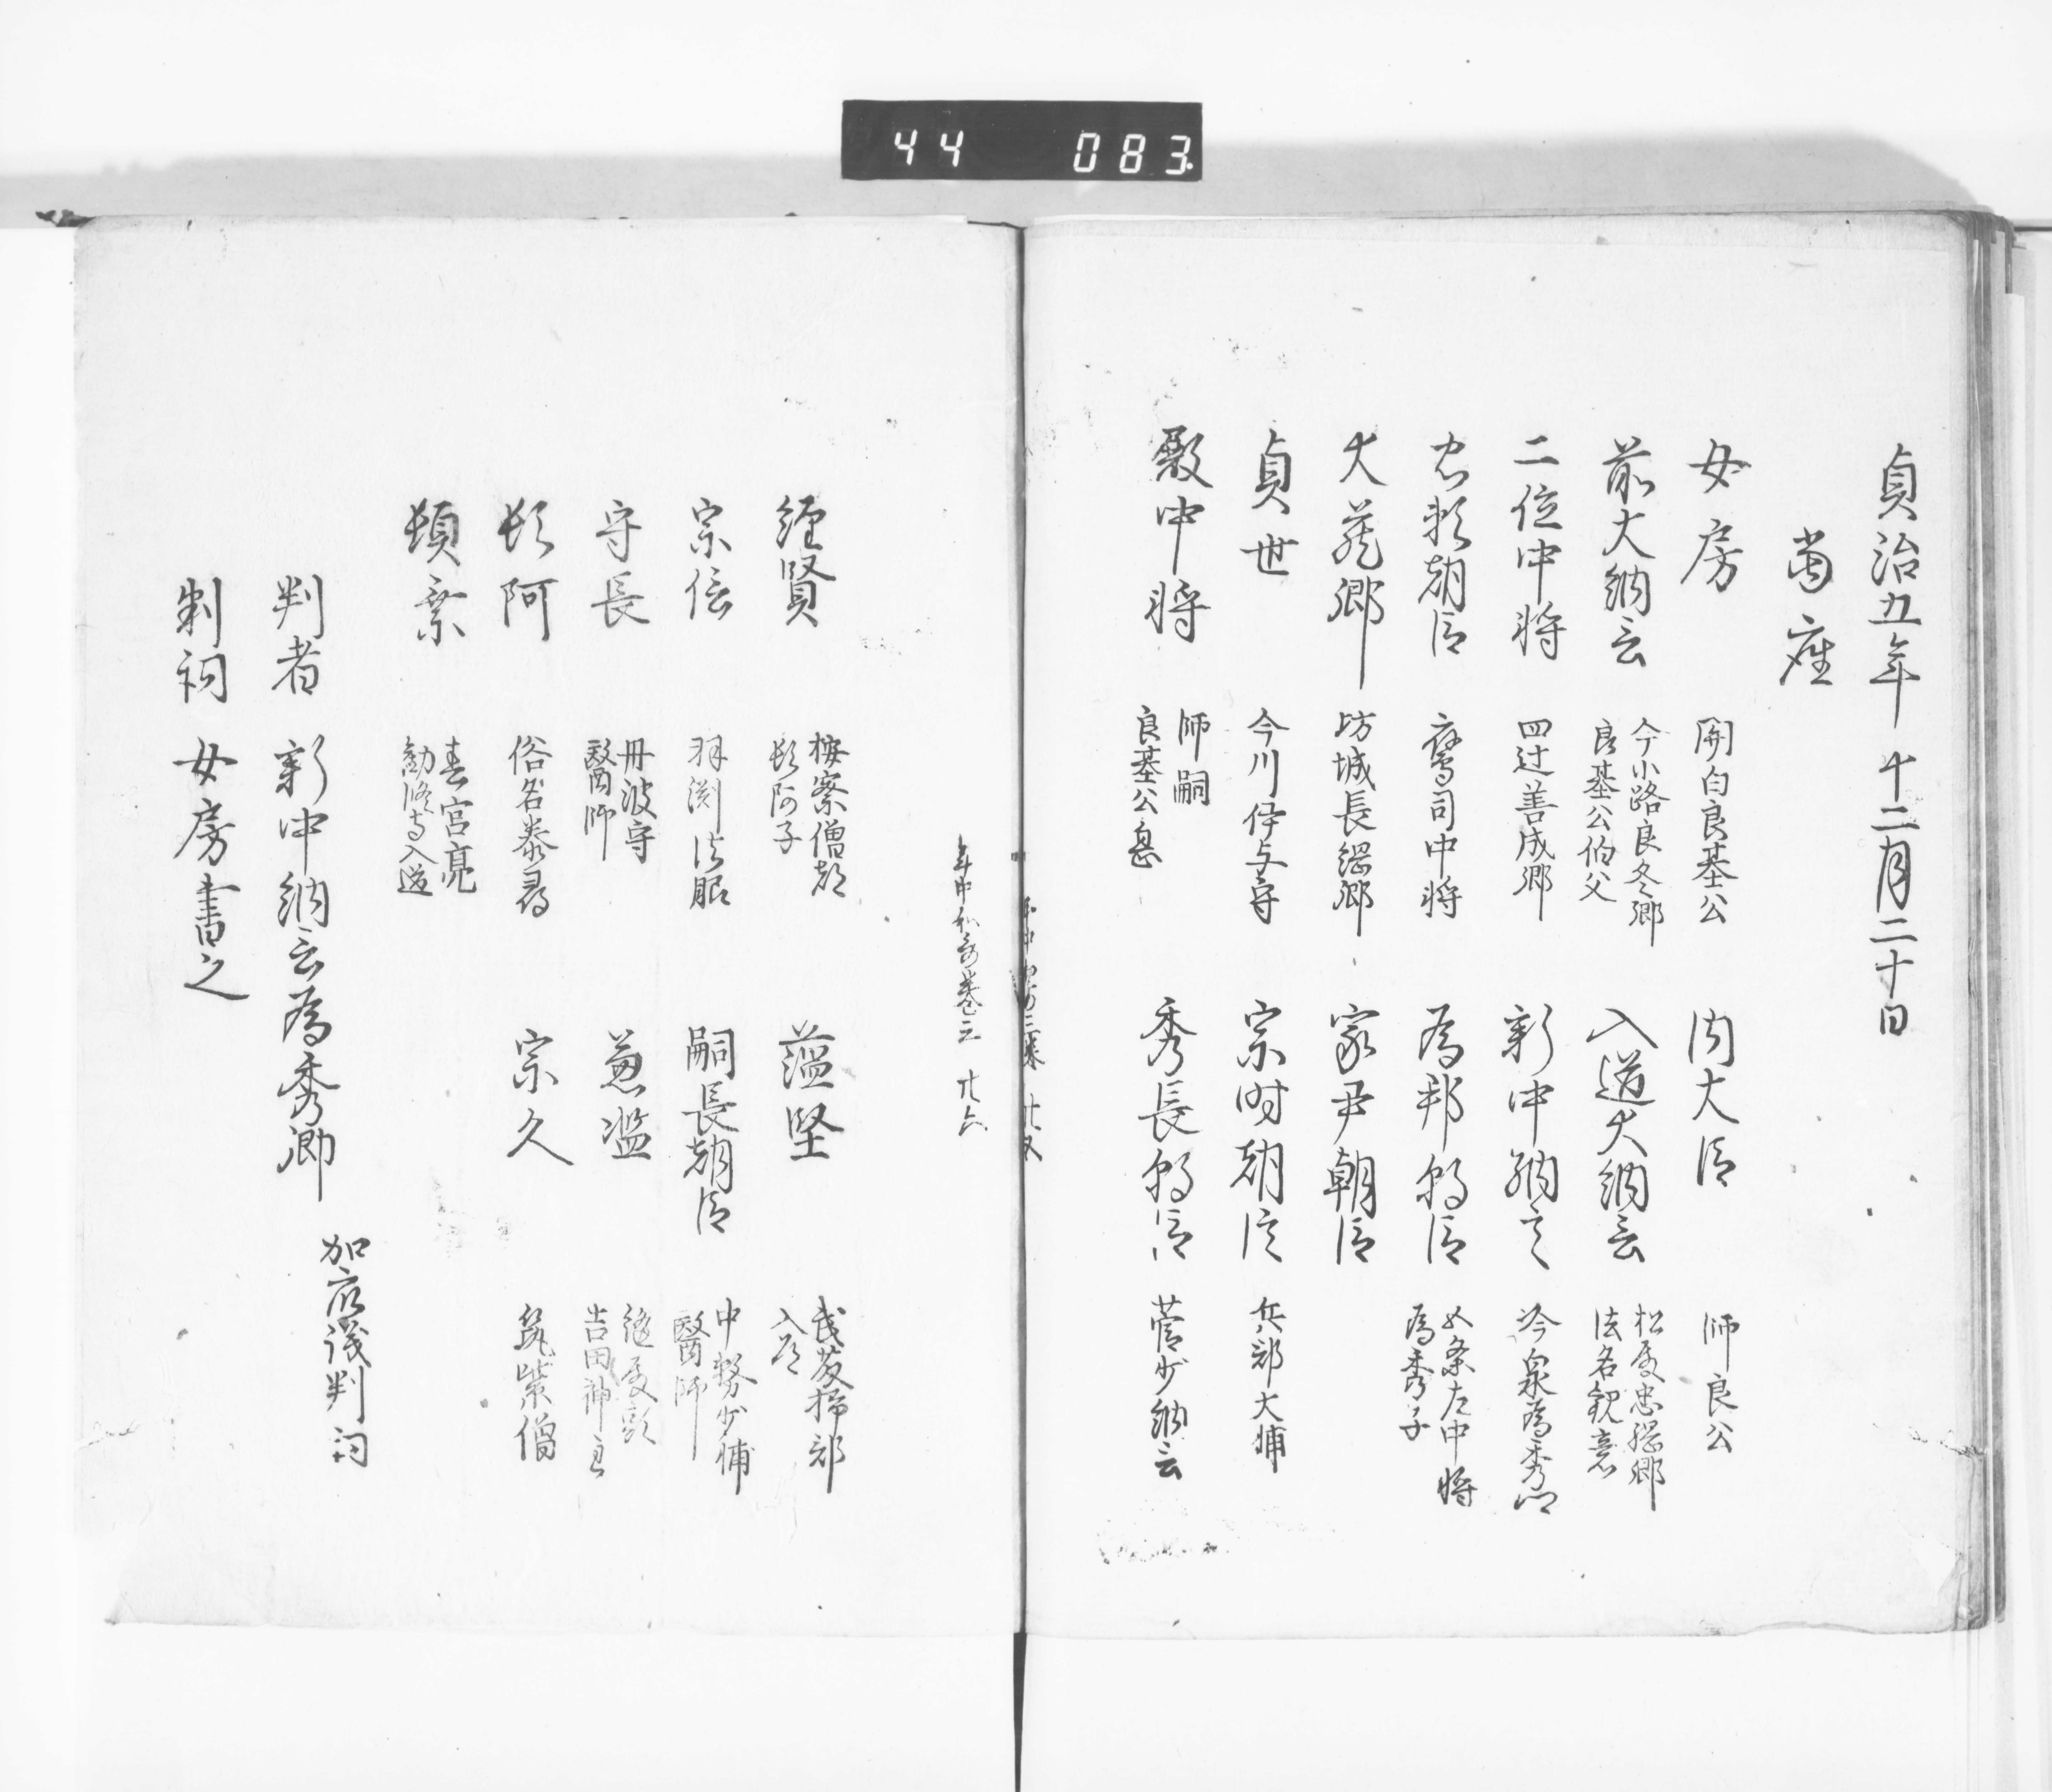 44 083
貞治五年十二月二十日
當座
女房 関白良基公 内大臣 師良公
前大納言 今小路良冬卿 良基公伯父 入道大納言 松殿忠嗣卿 法名観意
二位中将 四辻善成卿 新中納言 冷泉為秀卿
忠頼朝臣 鷹司中将 為邦朝臣 五条左中将 為秀子
大蔵卿 坊城長綱卿 家尹朝臣
貞世 今川伊与守 宗時朝臣 兵部大輔
殿中将 師嗣 良基公息 秀長朝臣 菅少納言
年中和哥巻三 廿六
経賢 按察僧都 頓阿子 薀堅 入道
宗信 法眼 嗣長朝臣 中務少輔 醫師
守長 丹波守 醫師 吉田神主
頓阿 俗名泰尋 宗久 筑紫僧
春宮亮 勧修寺入道
判者 新中納言為秀卿 加衆議判詞
判詞 女房書之